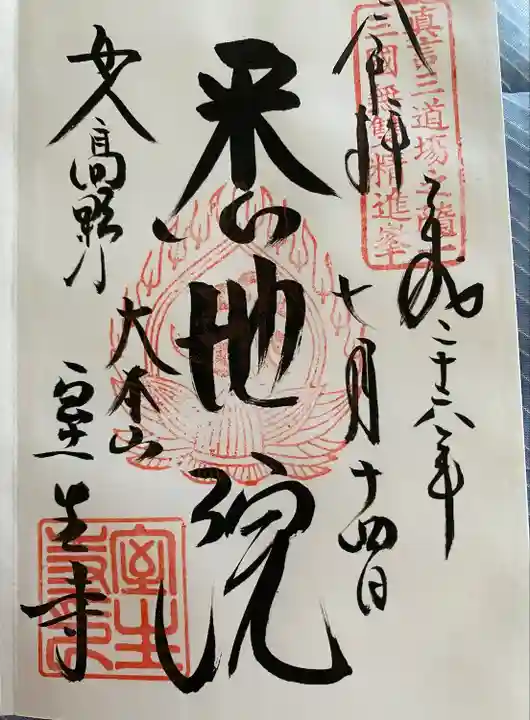 真言三道場之隨一
三國無雙精進峯
奉拝
平成二十六年
十月十四日
悉地院
女人高野
大本山
室生寺